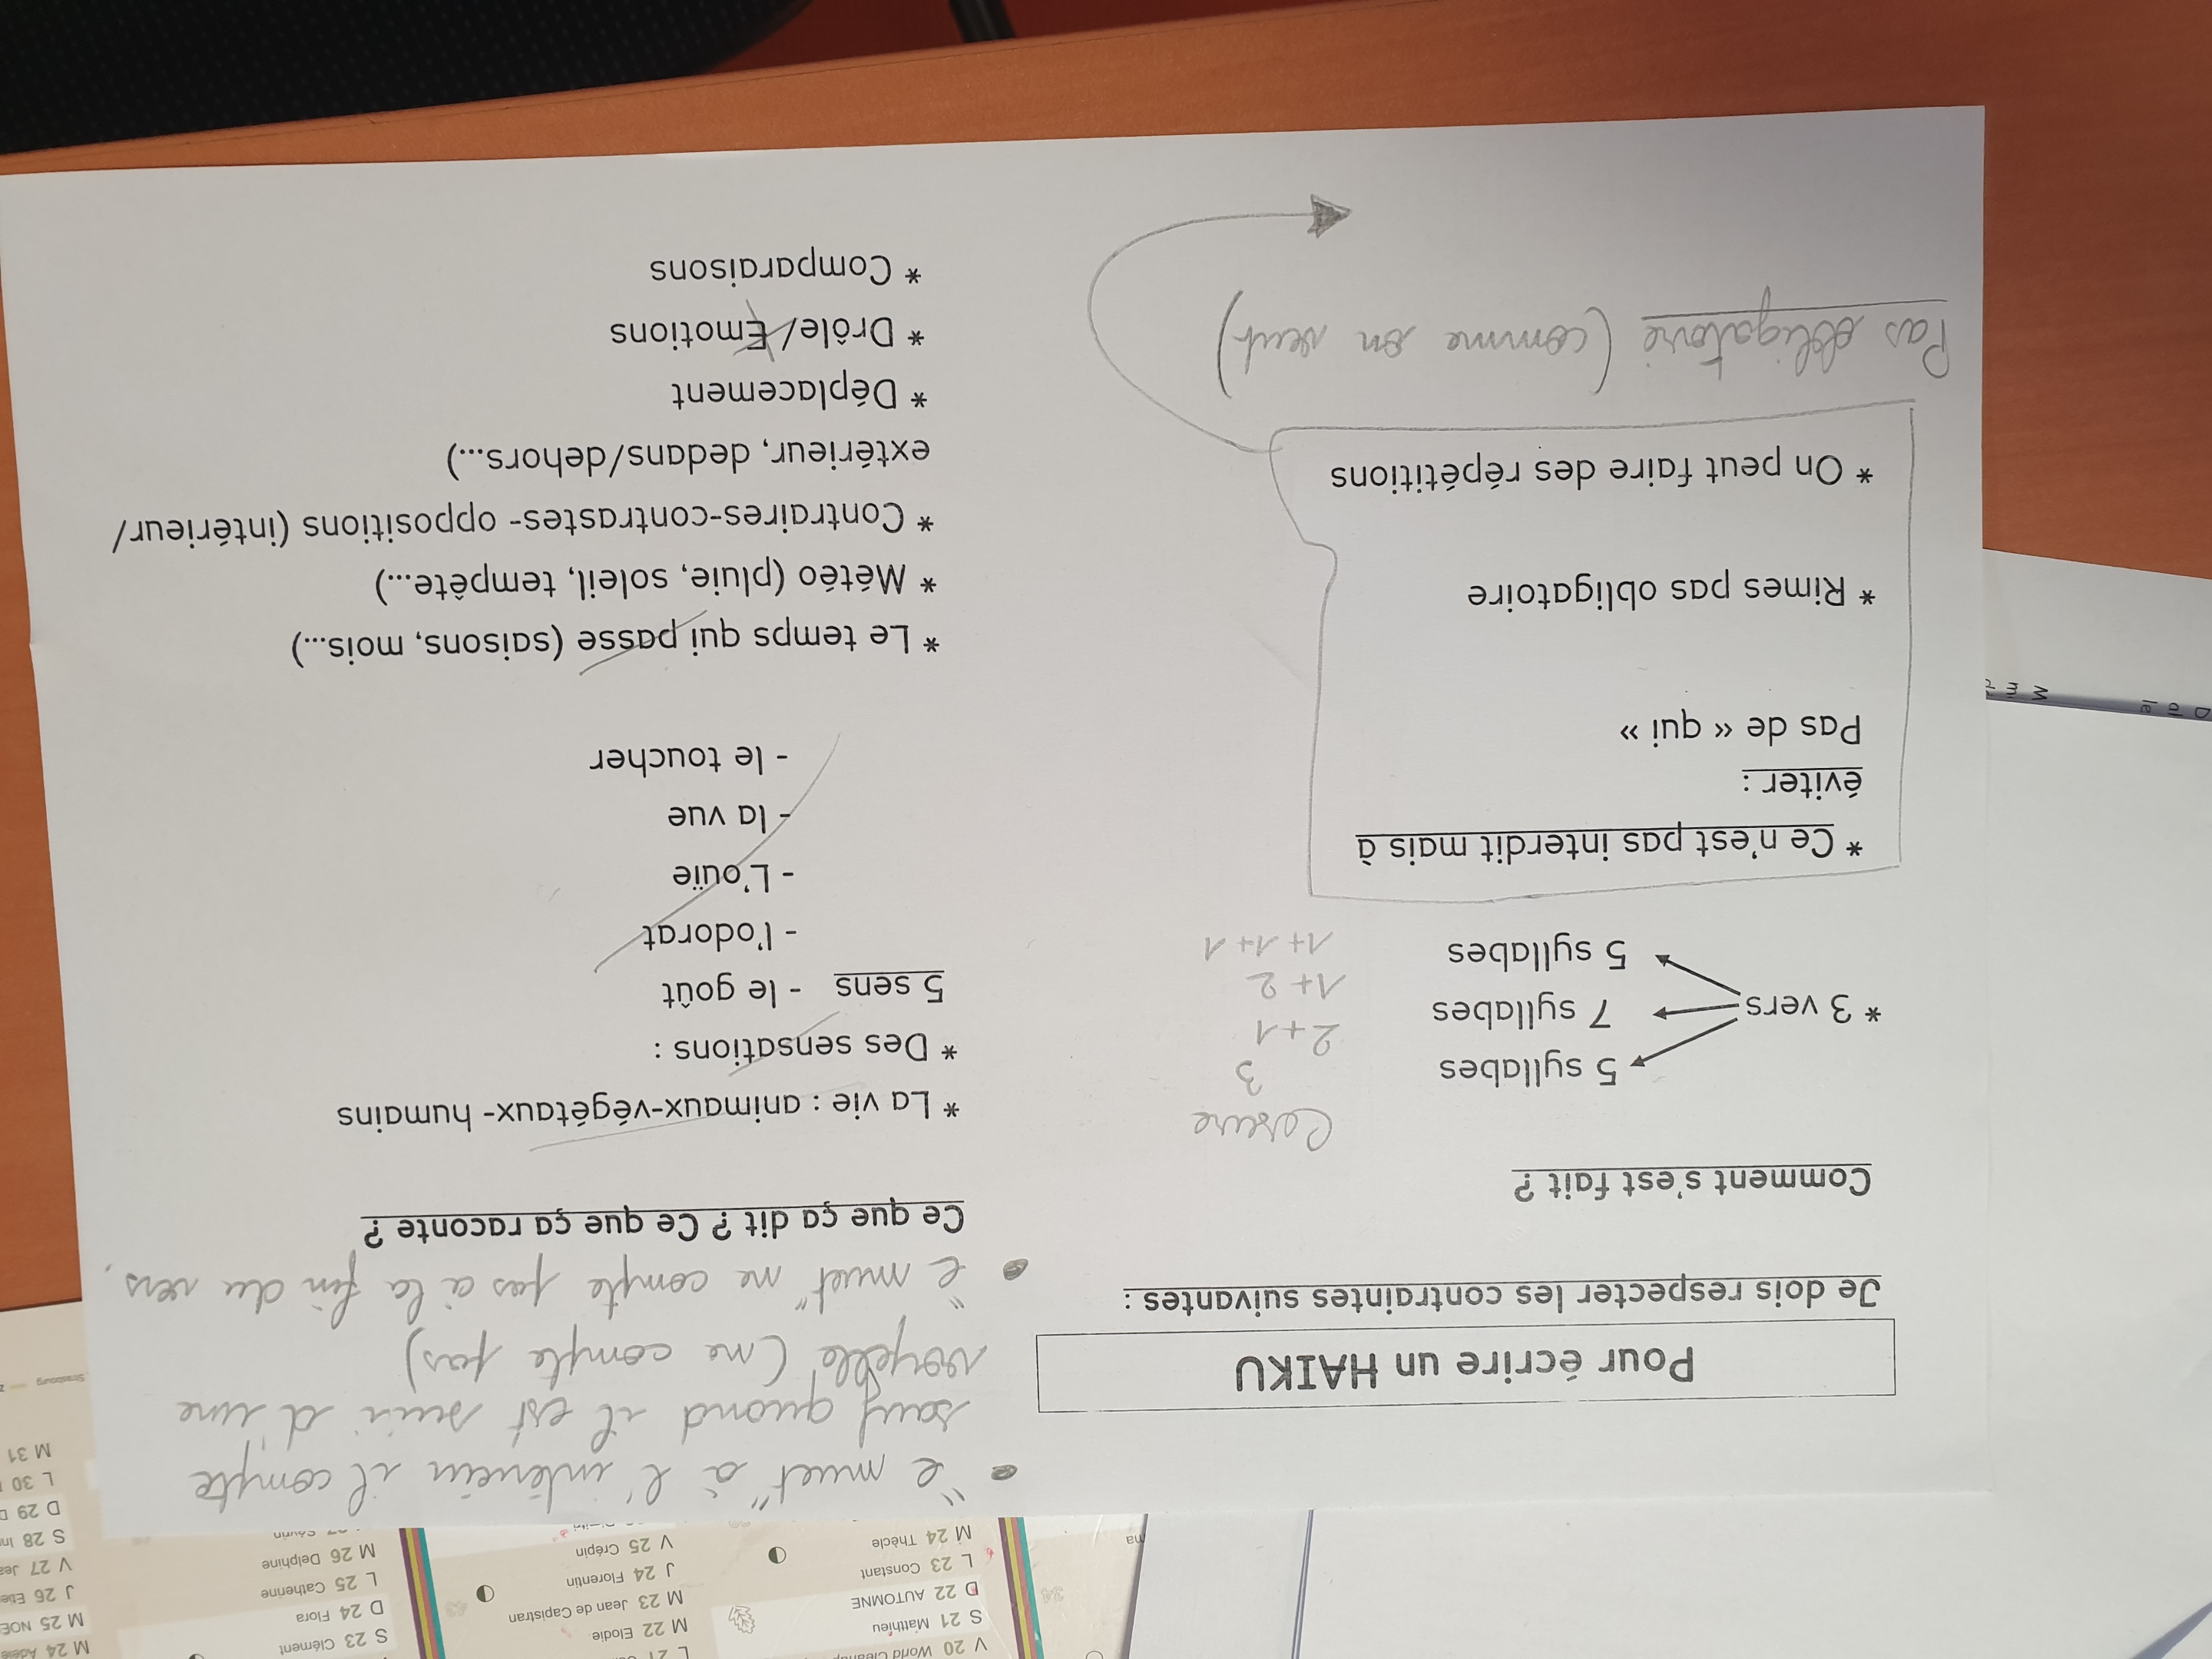 Pour écrire un HAIKU
Je dois respecter les contraintes suivantes :
Comment s'est fait ?
* 3 vers
5 syllabes
7 syllabes
5 syllabes
Cesure
3
2+1
1+2
1+1+1
* Ce n'est pas interdit mais à
éviter :
Pas de « qui »
* Rimes pas obligatoire
* On peut faire des répétitions
Pas obligatoire (comme on veut)
"e muet" à l'intérieur il compte
sauf quand il est suivi d'une
voyelle (ne compte pas)
"e muet" ne compte pas à la fin du vers.
Ce que ça dit ? Ce que ça raconte ?
* La vie : animaux-végétaux- humains
* Des sensations :
5 sens - le goût
- l'odorat
- L'ouïe
- la vue
- le toucher
* Le temps qui passe (saisons, mois...)
* Météo (pluie, soleil, tempête...)
* Contraires-contrastes- oppositions (intérieur/
extérieur, dedans/dehors...)
* Déplacement
* Drôle/ Emotions
* Comparaisons
V 20 World
S 21 Matthieu
D 22 AUTOMNE
L 23 Constant
M 24 Thècle
L 21
M 22 Elodie
M 23 Jean de Capistran
J 24 Florentin
V 25 Crépin
S 23 Clément
D 24 Flora
L 25 Catherine
M 26 Delphine
M 24 Adèle
M 25 NOE
J 26
V 27
S 28
D 29
L 30
M 31
Strasbourg